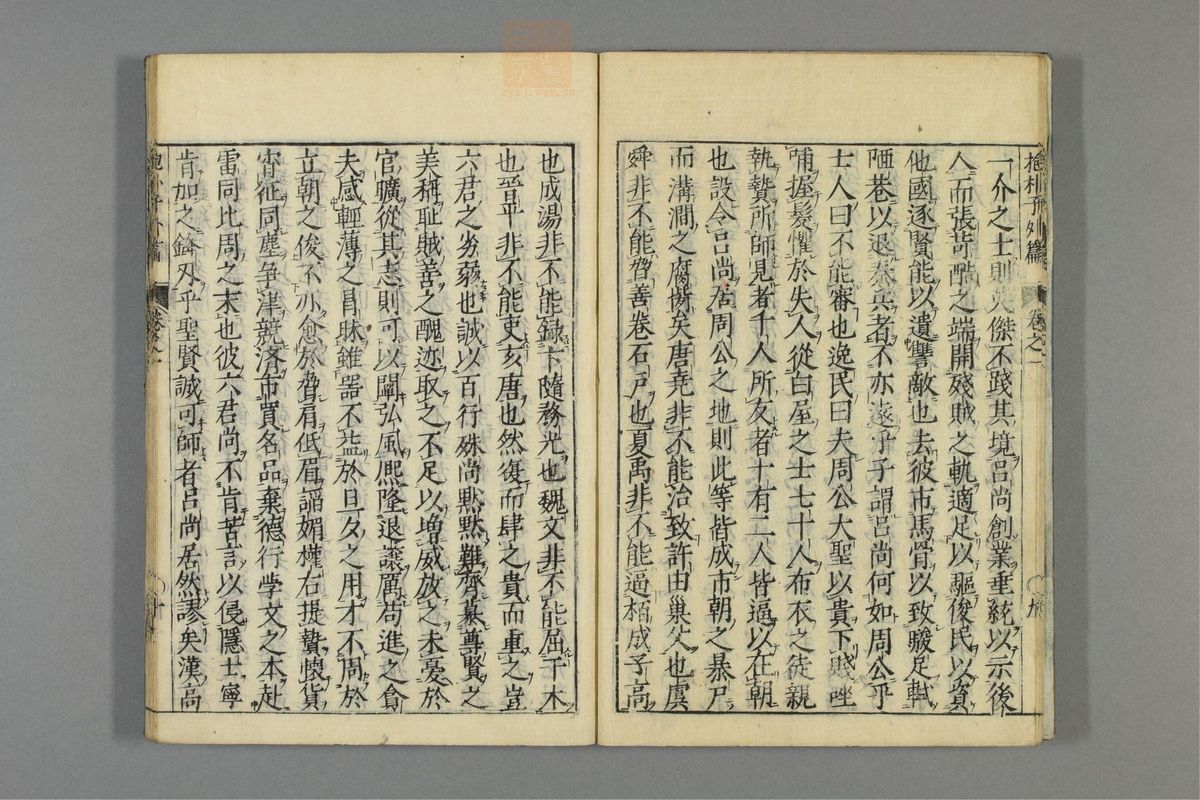 抱朴子外篇 卷之一 〇九
一介之士則英傑不踐其境呂尚創業垂統以示後
人而張苛酷之端開殘賊之軌適足以驅俊民以資
他國逐賢能以遺讐敵也去彼市馬骨以致駿足軾
陋巷以退秦兵者不亦遠乎子謂呂尚何如周公乎
士人曰不能審也逸民曰夫周公大聖以貴下賤唑
哺握髮懼於失人從白屋之士七十人布衣之徒親
執贄所師見者十人所友者十有二人皆逼以在朝
也設令呂尚居周公之地則此等皆成市朝之暴尸
而溝澗之腐胔矣唐堯非不能治致許由巢父也虞
舜非不能脅善卷石戶也夏禹非不能逼栢成子高
也成湯非不能錄卞隨務光也魏文非不能屈干木
也晉平非不能吏亥唐也然復而肆之貴而重之豈
六君之劣弱也誠以百行殊尚默默難齊慕尊賢之
美稱耻賊善之醜迹取之不足以增威放之未憂於
官曠從其志則可以闡弘風熈隆退讓厲苟進之貪
夫感輕薄之冒昧雖器不益於旦夕之用才不周於
立朝之俊不亦愈於脅肩低眉謟媚權右提贄懷貨
宵征同塵爭津競济市買名品棄德行学文之本赴
雷同比周之末也彼六君尚不肯苦言以侵隱士寧
肯加之鋒刃乎聖賢誠可師者呂尚居然謬矣漢高
抱朴子外篇 卷之一 〇十